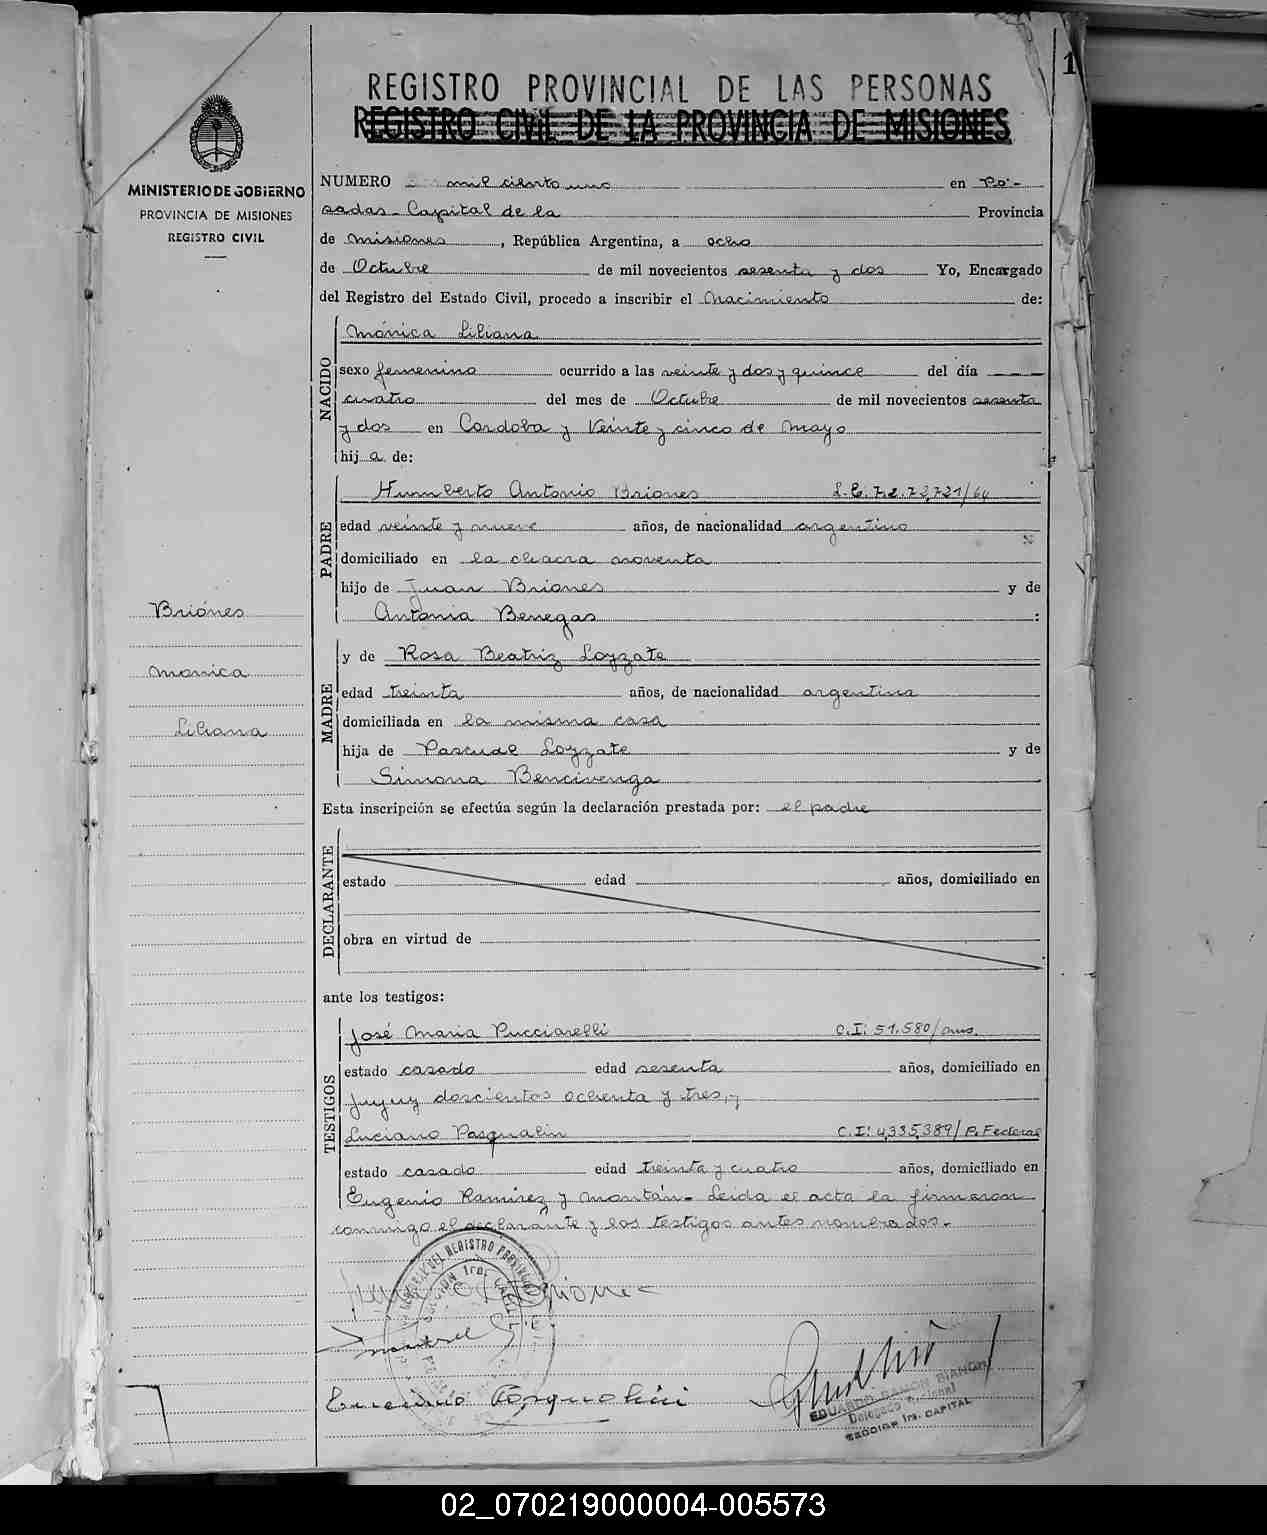 1
REGISTRO PROVINCIAL DE LAS PERSONAS
REGISTRO CIVIL DE LA PROVINCIA DE MISIONES
MINISTERIO DE GOBIERNO
PROVINCIA DE MISIONES
REGISTRO CIVIL
NUMERO mil ciento uno en Po-
sadas- Capital de la Provincia
de Misiones, República Argentina, a ocho
de Octubre de mil novecientos sesenta y dos Yo, Encargado
del Registro del Estado Civil, procedo a inscribir el Nacimiento de:
NACIDO
Mónica Liliana
sexo femenino ocurrido a las veinte y dos y quince del día ---
cuatro del mes de Octubre de mil novecientos sesenta
y dos en Cordoba y Veinte y cinco de Mayo
hija de:
PADRE
Humberto Antonio Briones L.E. 7.2.72,721/64
edad veinte y nueve años, de nacionalidad argentino
domiciliado en la chacra noventa
hijo de Juan Briones y de
Antonia Benegas :
Briones
Monica
Liliana
MADRE
y de Rosa Beatriz Loyzate
edad treinta años, de nacionalidad argentina
domiciliada en la misma casa
hija de Pascual Loyzate y de
Simona Bencivenga
Esta inscripción se efectúa según la declaración prestada por: el padre
DECLARANTE
estado edad años, domiciliado en
obra en virtud de
ante los testigos:
TESTIGOS
José Maria Pucciarelli C.I: 51.580/mns.
estado casado edad sesenta años, domiciliado en
Jujuy doscientos ochenta y tres,-y
Luciano Pasqualin C.I: 4,335,389/P. Federal
estado casado edad treinta y cuatro años, domiciliado en
Eugenio Ramirez y Montán- Leida el acta la firmaron
conmigo el declarante y los testigos antes nombrados.-
EDUARDO RAMON BIANCHI
Delegado
SECCION 1ra. CAPITAL
02_070219000004-005573